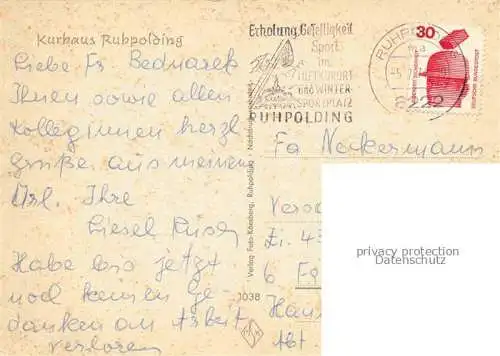 Kurhaus Ruhpolding
Liebe Fr. Bednarek
Ihnen sowie allen
Kolleginnen herzl.
Grüße aus meinem
Url. Ihre
Liesel
Habe bis jetzt
noch keinen Ge-
danken an Arbeit
verloren
Erholung, Geselligkeit
Sport
im
LUFTKURORT
und WINTER-
SPORTPLATZ
RUHPOLDING
RUHPOLD
8222
30
DEUTSCHE BUNDESPOST
Verlag Foto-Kössberg, Ruhpolding
1038
Fa Neckermann
privacy protection
Datenschutz
6